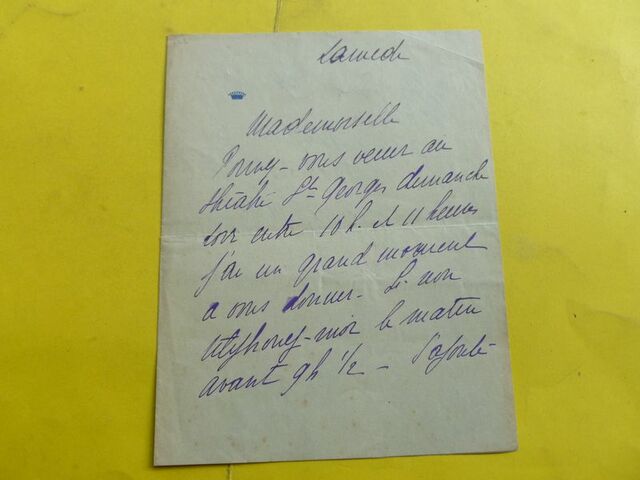 Samedi
Mademoiselle
Pouvez-vous venir au
théâtre St Georges dimanche
soir entre 10 h. et 11 heures
j'ai un grand moment
a vous donner. Si non
téléphonez-moi le matin
avant 9h 1/2 -